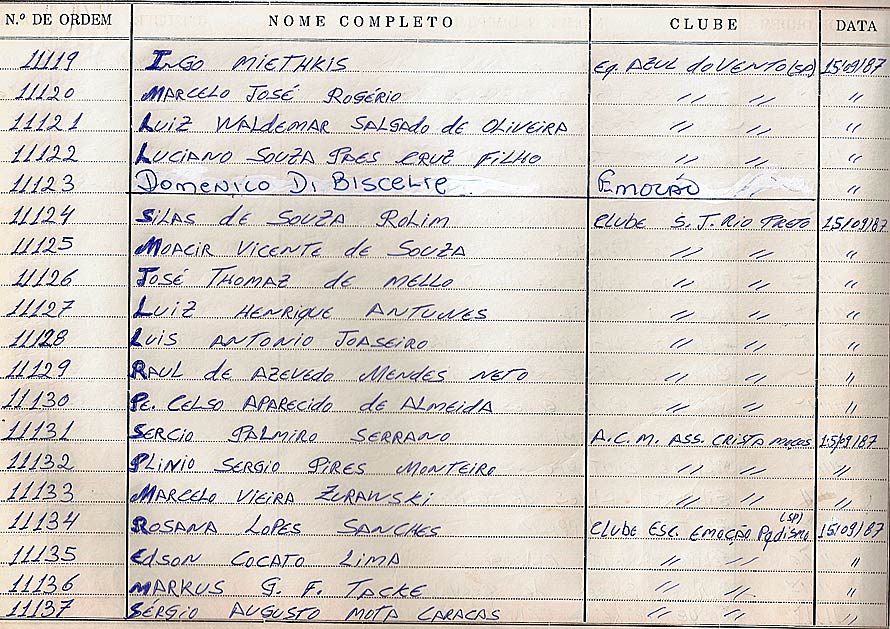 N.º DE ORDEM NOME COMPLETO CLUBE DATA
11119 INGO MIETHKIS Eq. AZUL do VENTO (SP) 15/09/87
11120 MARCELO JOSÉ ROGÉRIO " " "
11121 LUIZ WALDEMAR SALGADO de OLIVEIRA " " "
11122 LUCIANO SOUZA PAES CRUZ FILHO " " "
11123 DOMENICO DI BISCEGLIE EMOÇÃO " "
11124 SILAS de SOUZA ROLIM CLUBE S. J. RIO PRETO 15/09/87
11125 MOACIR VICENTE de SOUZA " " "
11126 JOSÉ THOMAZ de MELLO " " "
11127 LUIZ HENRIQUE ANTUNES " " "
11128 LUIS ANTONIO JOASEIRO " " "
11129 RAUL de AZEVEDO MENDES NETO " " "
11130 PE. CELSO APARECIDO de ALMEIDA " " "
11131 SERGIO PALMIRO SERRANO A.C.M. ASS. CRISTA MOÇOS 15/09/87
11132 PLINIO SERGIO PIRES MONTEIRO " " "
11133 MARCELO VIEIRA ZURAWSKI " " "
11134 ROSANA LOPES SANCHES CLUBE ESC. EMOÇÃO Pqdismo (SP) 15/09/87
11135 EDSON COCATO LIMA " " "
11136 MARKUS G. F. TACKE " " "
11137 SÉRGIO AUGUSTO MOTA CARACAS " " "